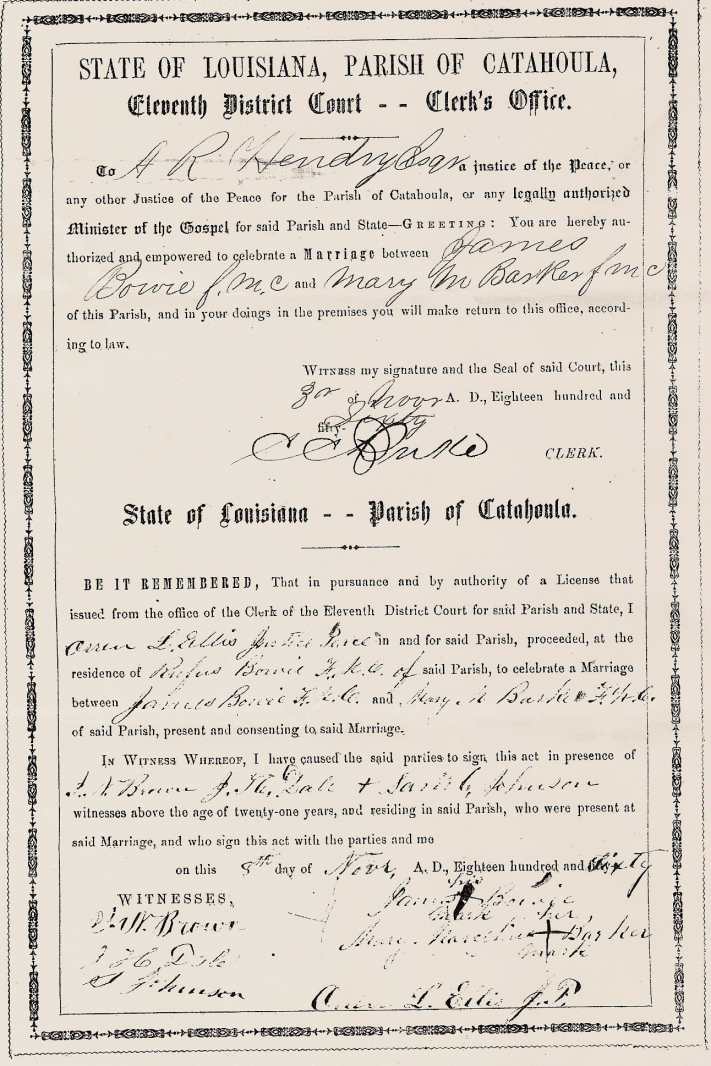 STATE OF LOUISIANA, PARISH OF CATAHOULA,
Eleventh District Court - - Clerk's Office.
To A R Hendry Esqr a justice of the Peace, or
any other Justice of the Peace for the Parish of Catahoula, or any legally authorized
Minister of the Gospel for said Parish and State—GREETING: You are hereby au-
thorized and empowered to celebrate a Marriage between James
Bowie f.m.c and Mary M Barker f m c
of this Parish, and in your doings in the premises you will make return to this office, accord-
ing to law.
WITNESS my signature and the Seal of said Court, this
of Novr A. D., Eighteen hundred and
fifty- Sixty
Duke CLERK.
State of Louisiana - - Parish of Catahoula.
BE IT REMEMBERED, That in pursuance and by authority of a License that
issued from the office of the Clerk of the Eleventh District Court for said Parish and State, I
Orren L. Ellis Justice Peace in and for said Parish, proceeded, at the
residence of Rufus Bowie of said Parish, to celebrate a Marriage
between James Bowie and Mary M Barker
of said Parish, present and consenting to said Marriage.
IN WITNESS WHEREOF, I have caused the said parties to sign this act in presence of
Brown Dale + Johnson
witnesses above the age of twenty-one years, and residing in said Parish, who were present at
said Marriage, and who sign this act with the parties and me
on this 8th day of Novr, A. D., Eighteen hundred and Sixty
WITNESSES,
his
James Bowie
mark her,
W. Brown
Mary + Barker
mark
Dale
Johnson
Orren L. Ellis J.P.